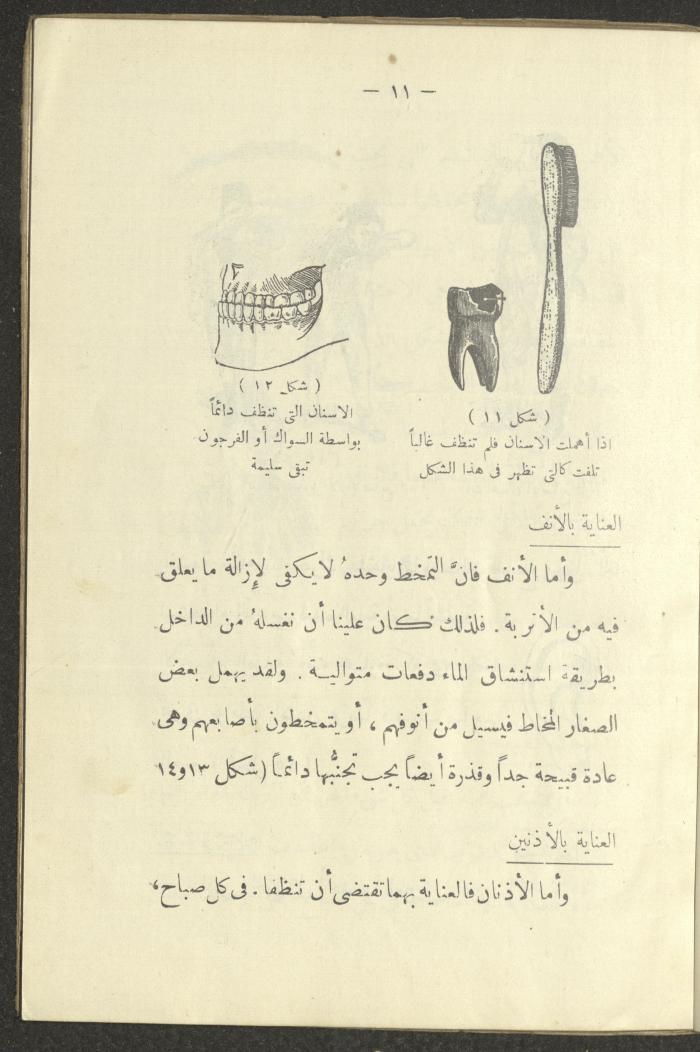 — ١١ —
( شكل ١١ )
اذا أهملت الاسنان فلم تنظف غالباً
تلفت كالتى تظهر فى هذا الشكل
( شكل ١٢ )
الاسنان التى تنظف دائماً
بواسطة السواك أو الفرجون
تبقى سليمة
العناية بالأنف
وأما الأنف فانَّ التمخط وحدهُ لا يكفى لإِزالة ما يعلق
فيه من الأتربة . فلذلك كان علينا أن نغسلهُ من الداخل
بطريقة استنشاق الماء دفعات متوالية . ولقد يهمل بعض
الصغار المخاط فيسيل من أنوفهم ، أو يتمخطون بأصابعهم وهى
عادة قبيحة جداً وقذرة أيضاً يجب تجنُّبها دائماً (شكل ١٣ و١٤
العناية بالأذنين
وأما الأذنان فالعناية بهما تقتضى أن تنظفا . فى كل صباح ،